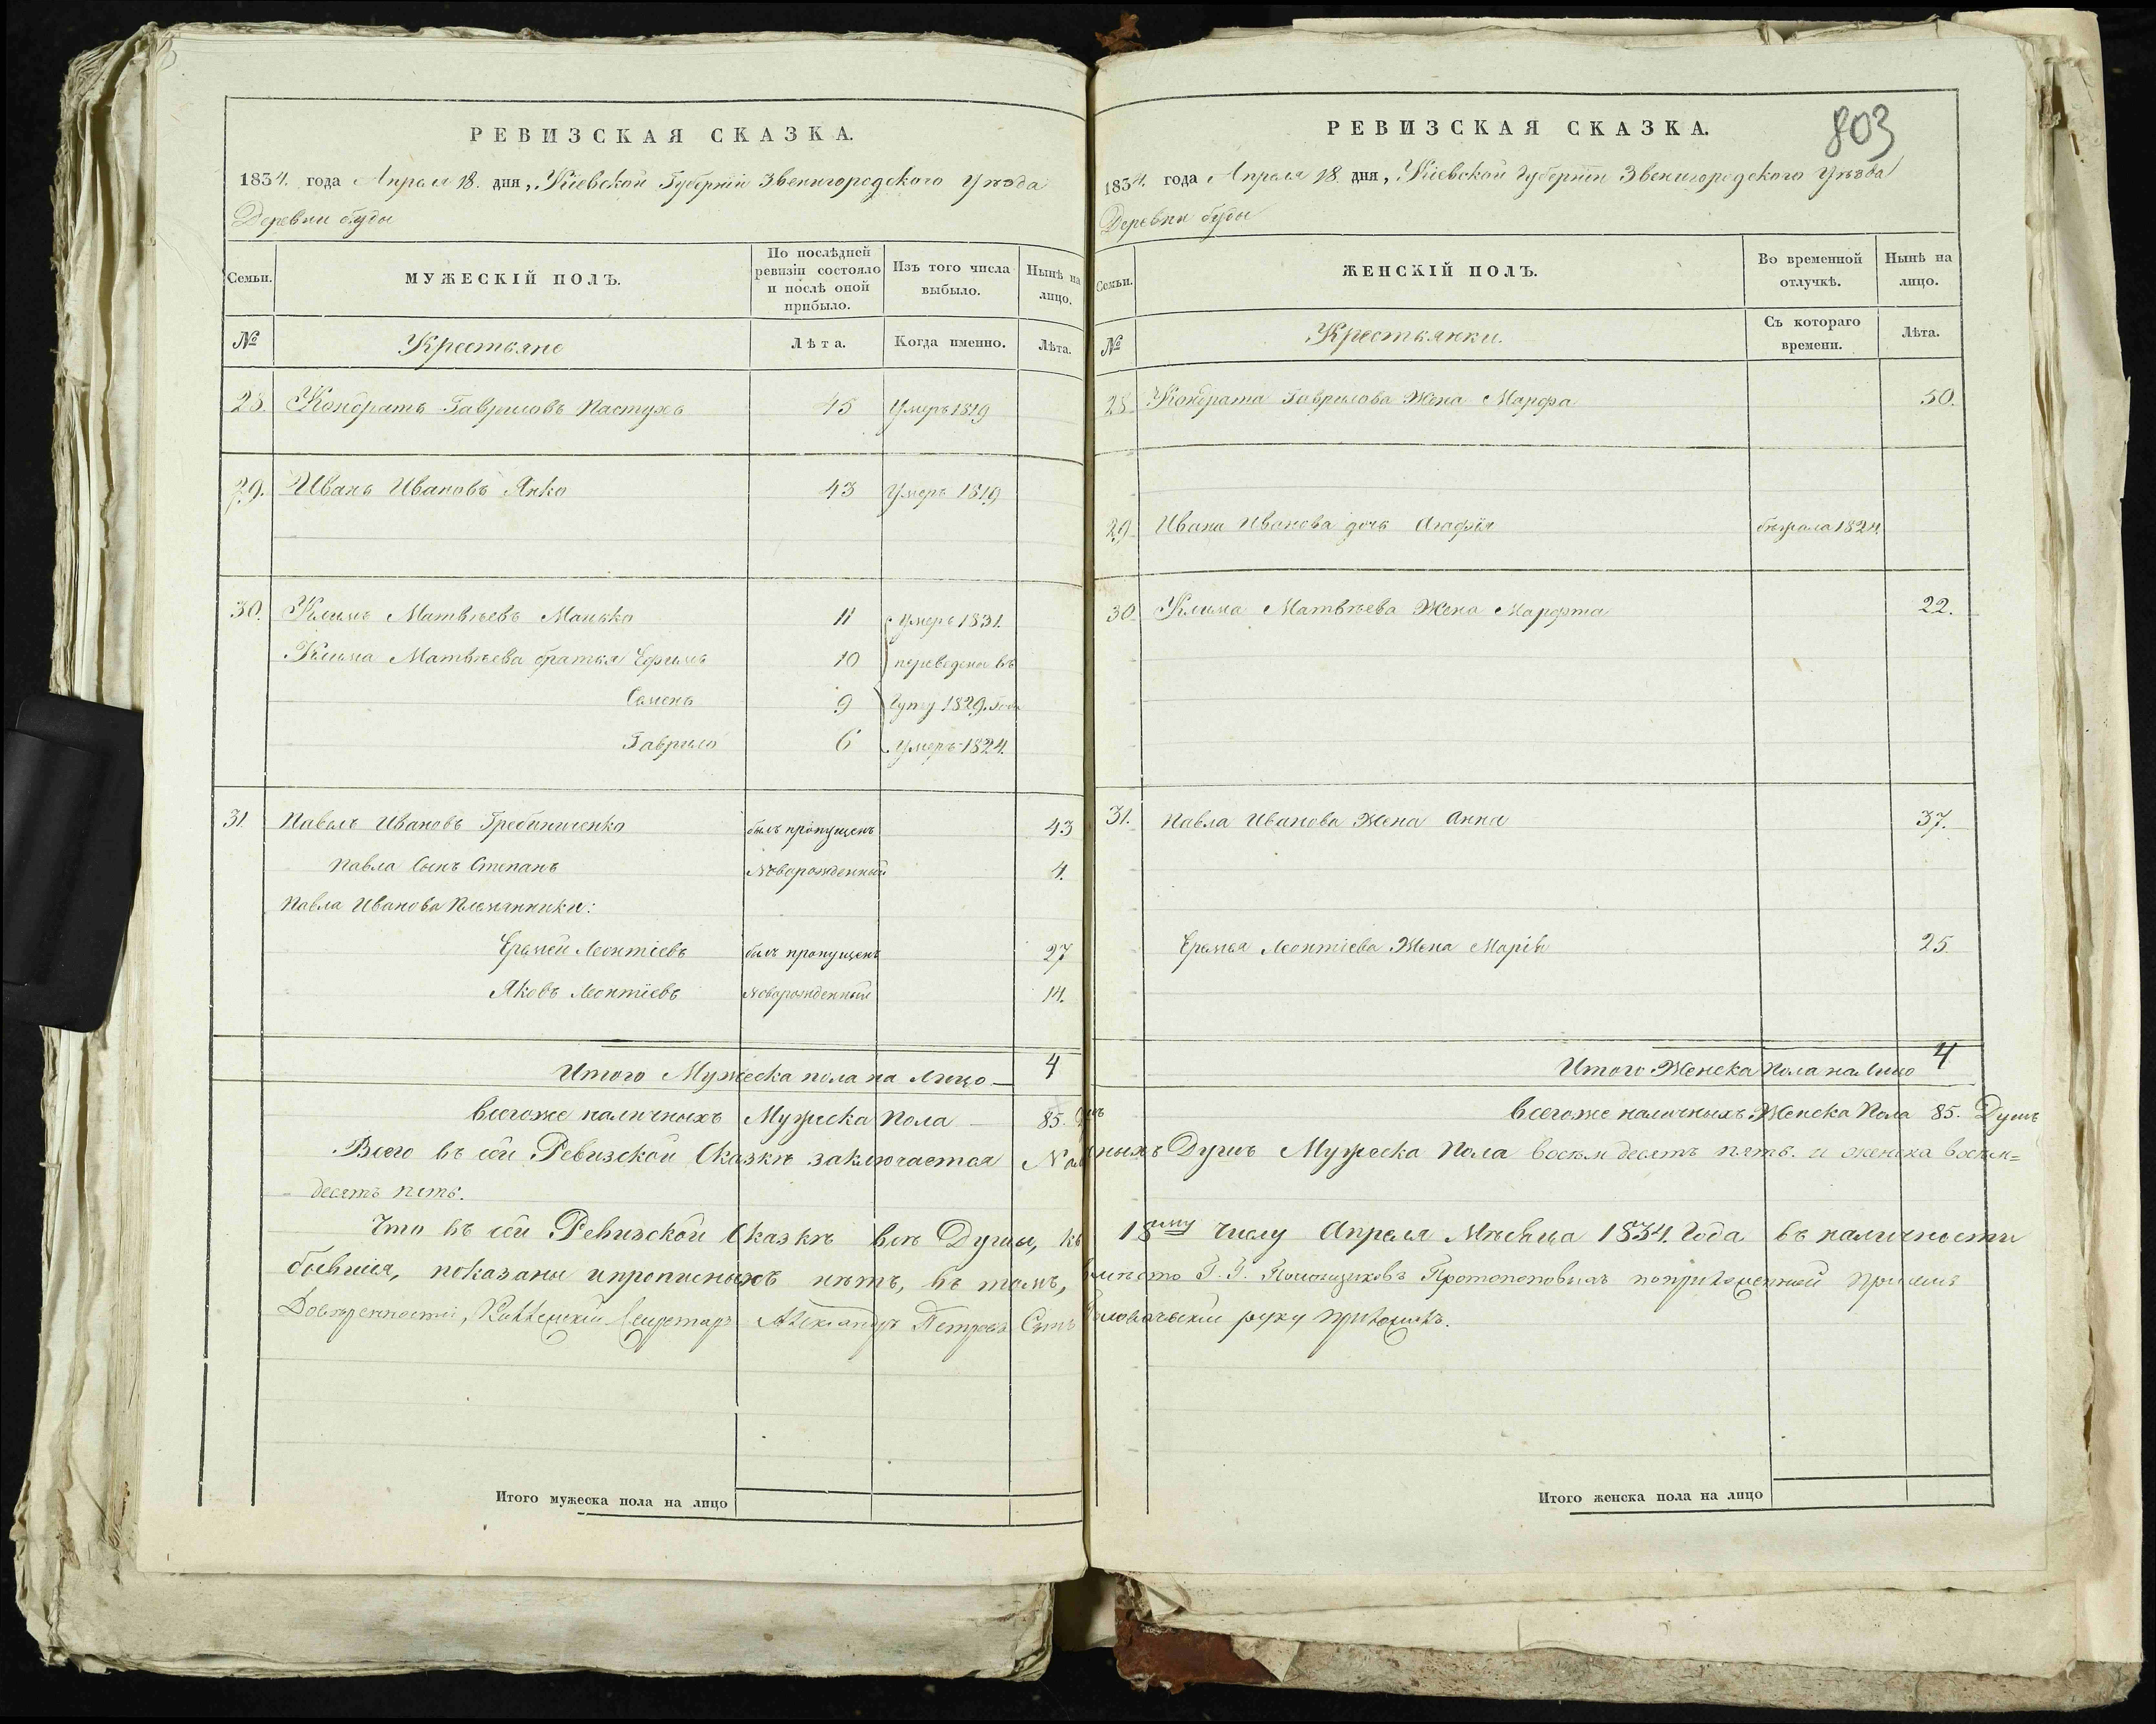 РЕВИЗСКАЯ СКАЗКА.
1834. года Апреля 18. дня, Кіевской Губерніи Звенигородского Уѣзда
Деревни буды
Семьи.
МУЖЕСКІЙ ПОЛЪ.
По послѣдней ревизіи состояло и послѣ оной прибыло.
Изъ того числа выбыло.
Нынѣ на лицо.
№
Крестьяне
Лѣта.
Когда именно.
Лѣта.
28. Кондратъ Гавриловъ Пастухъ 45 Умеръ 1819
29. Иванъ Ивановъ Янко 43 Умеръ 1819
30. Климъ Матвѣевъ Манько 11 Умеръ 1831.
Клима Матвѣева братья Ефимъ 10 переведены въ
Семенъ 9 1829. года
Гаврило 6 Умеръ 1824.
31 Павелъ Ивановъ Гребениченко былъ пропущенъ 43
Павла Сынъ Степанъ Новорожденный 4.
Павла Иванова Племянники:
Еремей Леонтіевъ былъ пропущенъ 27
Яковъ Леонтіевъ Новорожденный 14.
Итого Мужеска пола на лицо 4
всегоже наличныхъ Мужеска Пола 85.
Итого мужеска пола на лицо
803
РЕВИЗСКАЯ СКАЗКА.
1834. года Апреля 18. дня, Кіевской Губерніи Звенигородского Уѣзда
Деревни буды
Семьи.
ЖЕНСКІЙ ПОЛЪ.
Во временной отлучкѣ.
Нынѣ на лицо.
№
Крестьянки.
Съ котораго времени.
Лѣта.
28. Кондрата Гаврилова Жена Марфа 50.
29 Ивана Иванова дочь Агафія бѣжала 1824.
30 Клима Матвѣева Жена Марфта 22.
31. Павла Иванова Жена Анна 37.
Еремея Леонтіева Жена Марія 25.
Итого Женска Пола на Лицо 4
Всегоже наличныхъ Женска Пола 85. Душъ
Всего въ сей Ревизской Сказкѣ заключается Наличныхъ Душъ Мужеска Пола восемьдесятъ пять. и женска восем=
десятъ пять.
Что въ сей Ревизской Сказкѣ всѣ Душы, къ 18ему числу Апреля Мѣсяца 1834. Года въ наличности
бывшія, показаны и прописныхъ нѣтъ, въ томъ, вмѣсто Г. Г. Помощиковъ Протопоповыхъ
Довѣренности, Секретарь Александръ Петровъ Сынъ руку приложилъ.
Итого женска пола на лицо